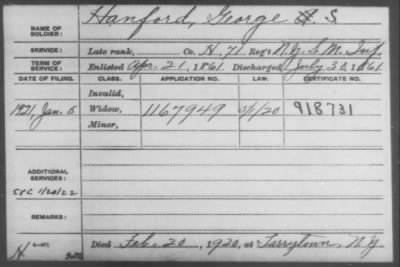 NAME OF SOLDIER: Hanford, George S
SERVICE: Late rank, Co. H, 71 Reg't N.Y. S. M. Inf.
TERM OF SERVICE: Enlisted Apr. 21, 1861 Discharged July 30, 1861
DATE OF FILING. CLASS. APPLICATION NO. LAW. CERTIFICATE NO.
Invalid,
1921, Jan. 5 Widow, 1167949 5/1/20 918731
Minor,
ADDITIONAL SERVICES:
SPC 1/20/22
REMARKS:
Died Feb. 20, 1920, at Tarrytown, N.Y.